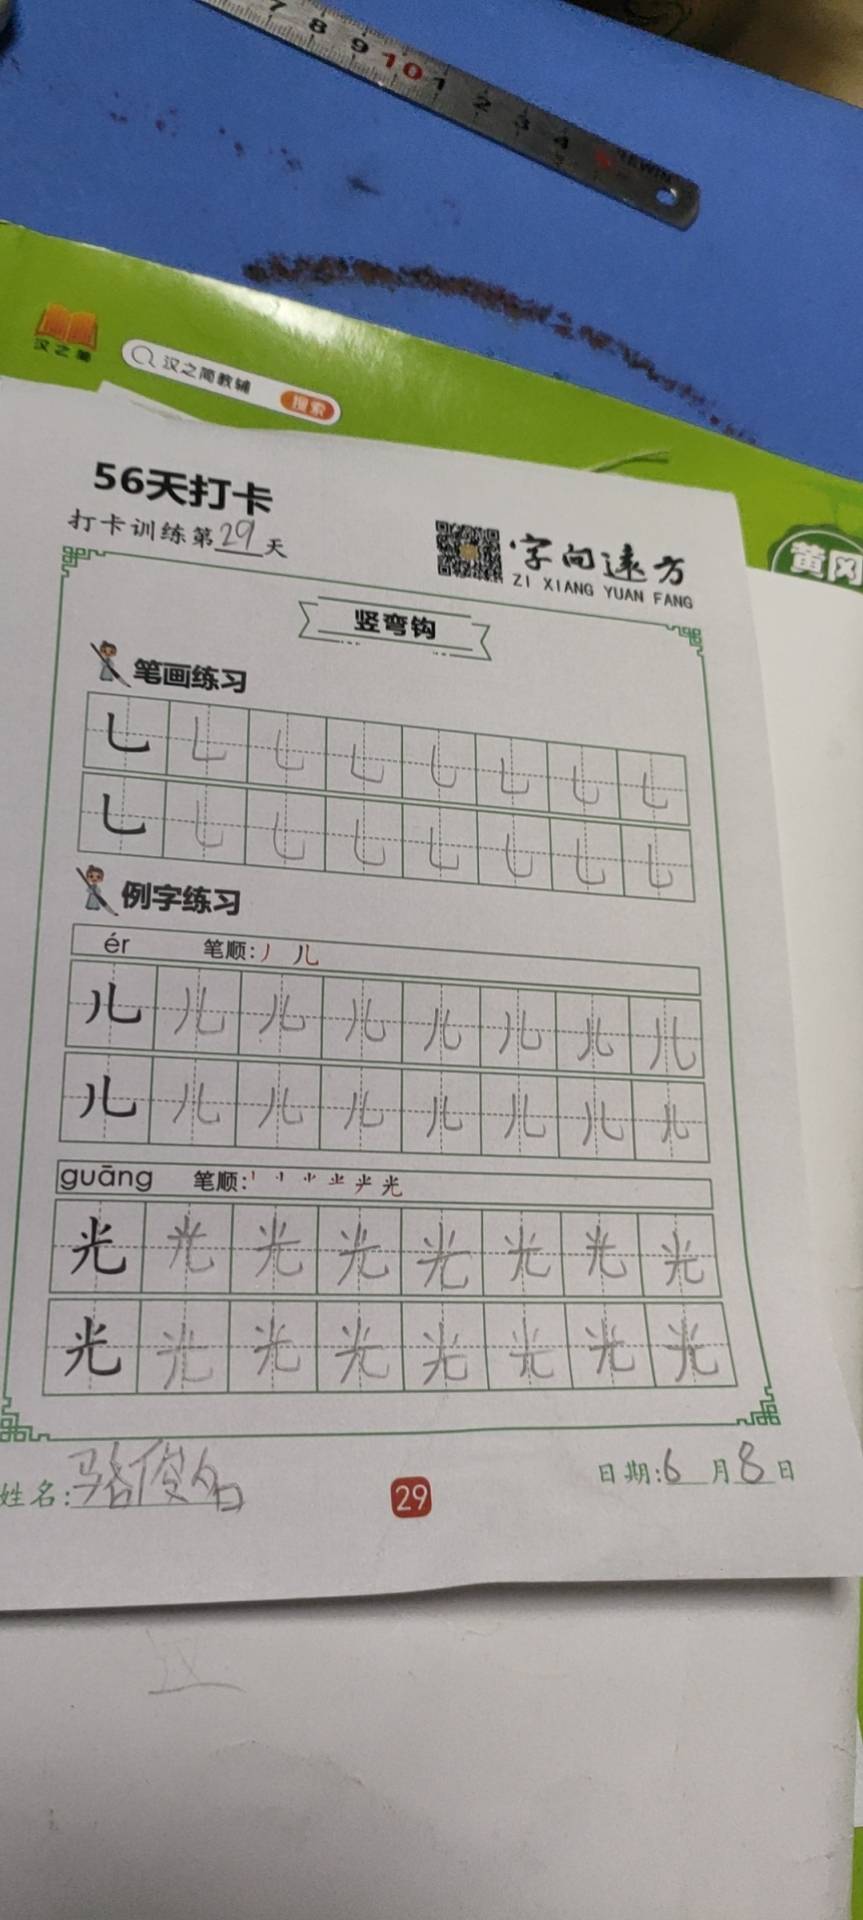 7 8 9 10 1 2 3 4 5 REWIN
汉之简
汉之简教辅 搜索
黄冈
56天打卡
打卡训练第29天
字向远方
ZI XIANG YUAN FANG
竖弯钩
笔画练习
乚 乚 乚 乚 乚 乚 乚 乚
乚 乚 乚 乚 乚 乚 乚 乚
例字练习
ér 笔顺:丿 儿
儿 儿 儿 儿 儿 儿 儿 儿
儿 儿 儿 儿 儿 儿 儿 儿
guāng 笔顺: 光
光 光 光 光 光 光 光 光
光 光 光 光 光 光 光 光
姓名:骆俊
29
日期:6月8日